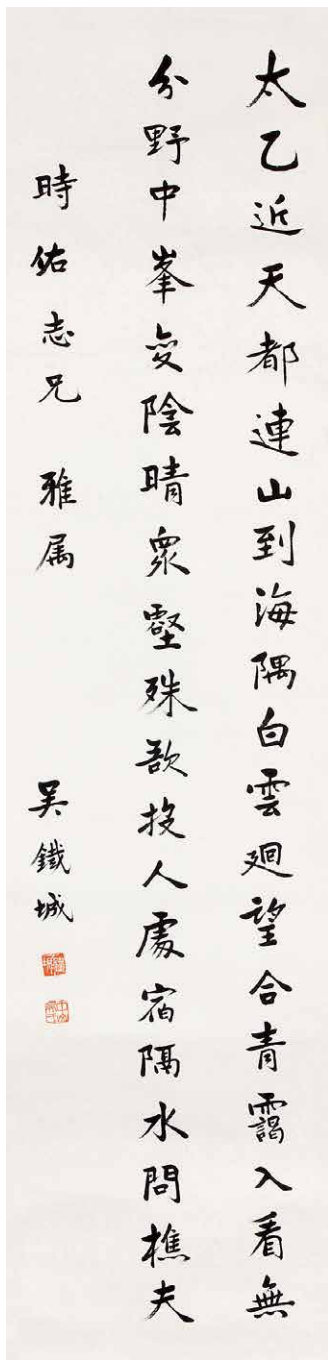 太乙近天都連山到海隅白雲廻望合青靄入看無
分野中峯變陰晴衆壑殊欲投人處宿隔水問樵夫
時佑志兄 雅属 吳鐵城